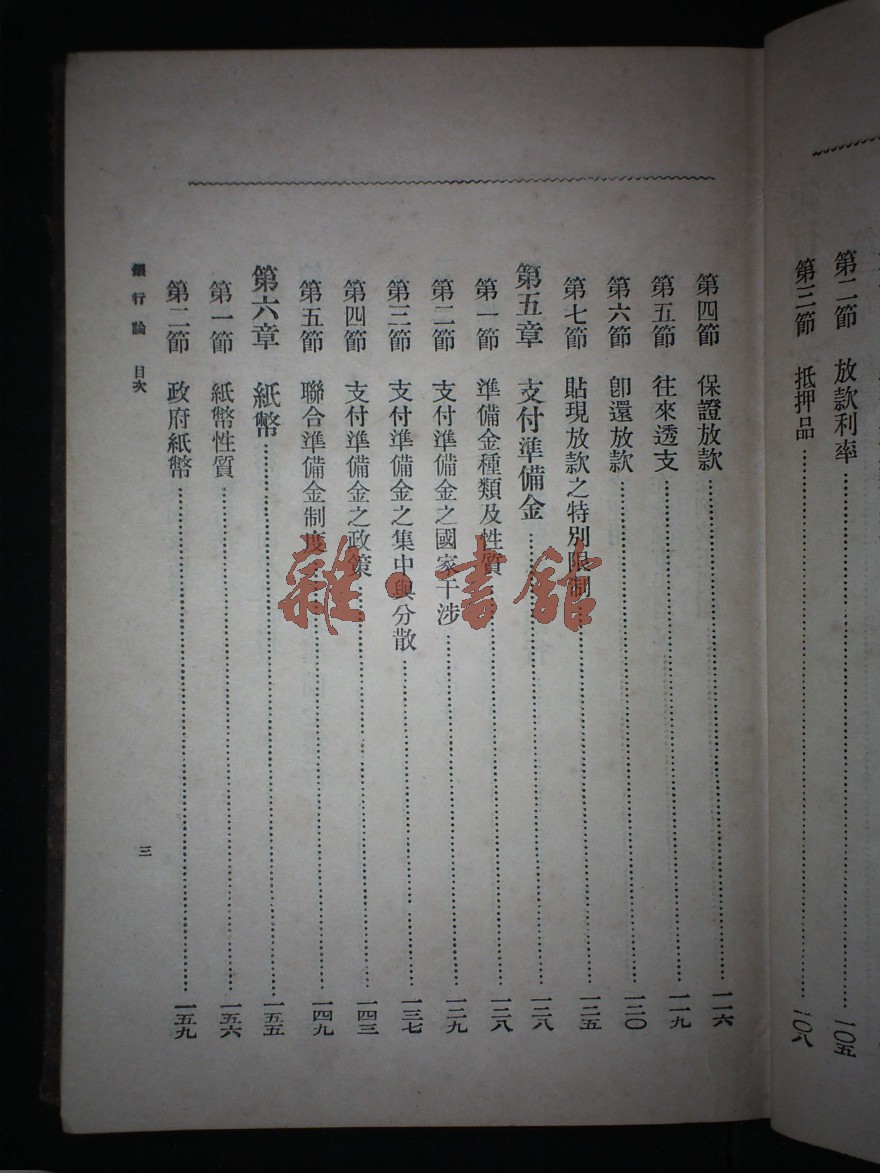 第二節　放款利率……一〇五
第三節　抵押品……一〇八
第四節　保證放款……一一六
第五節　往來透支……一一九
第六節　卽還放款……一二〇
第七節　貼現放款之特別限制……一二五
第五章　支付準備金……一二八
第一節　準備金種類及性質……一二八
第二節　支付準備金之國家干涉……一二九
第三節　支付準備金之集中與分散……一三七
第四節　支付準備金之政策……一四三
第五節　聯合準備金制度……一四九
第六章　紙幣……一五五
第一節　紙幣性質……一五六
第二節　政府紙幣……一五九
銀行論　目次
三
雜·書館